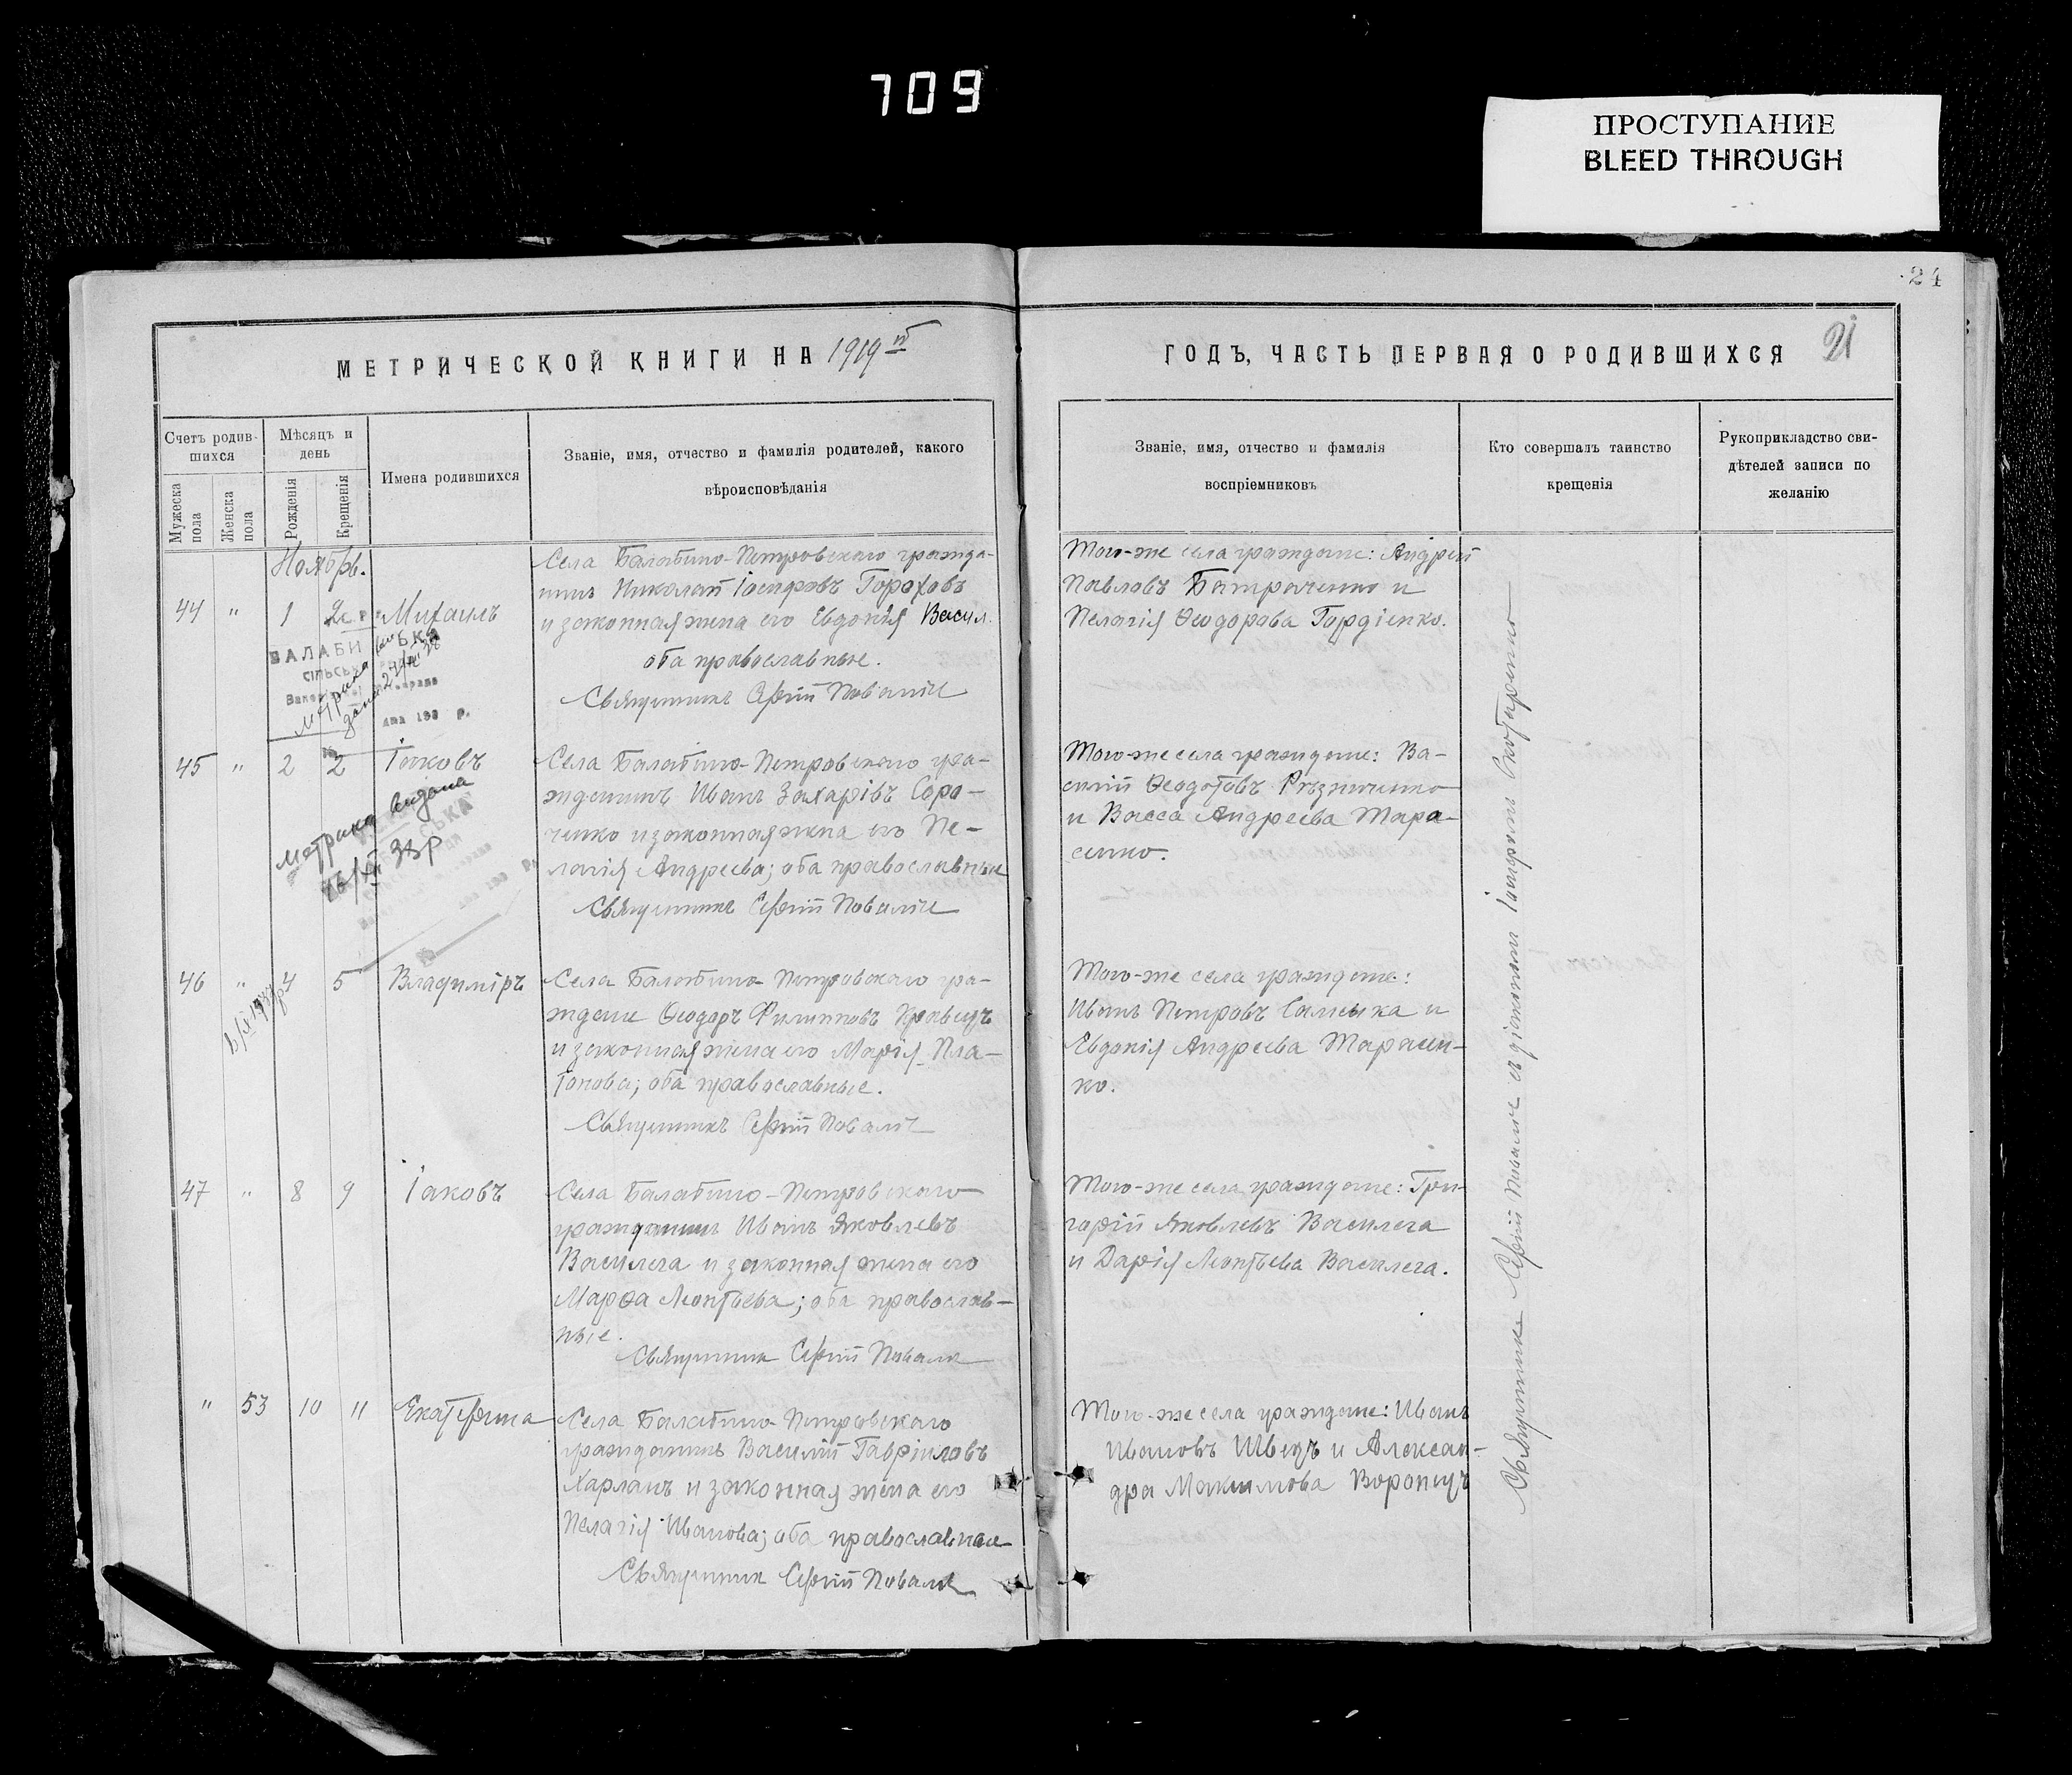 709
ПРОСТУПАНИЕ
BLEED THROUGH
24
МЕТРИЧЕСКОЙ КНИГИ НА 1919 й
ГОДЪ, ЧАСТЬ ПЕРВАЯ О РОДИВШИХСЯ 21
Счетъ родив-
шихся
Мужеска пола
Женска пола
Мѣсяцъ и
день
Рожденія
Крещенія
Имена родившихся
Званіе, имя, отчество и фамилія родителей, какого
вѣроисповѣданія
Званіе, имя, отчество и фамилія
воспріемниковъ
Кто совершалъ таинство
крещенія
Рукоприкладство сви-
дѣтелей записи по
желанію
Ноябрь.
44 " 1 2 Михаилъ
Села Балабино-Петровскаго гражда-
нинъ Николай Іосифовъ Гороховъ
и законная жена его Евдокія Васил.
оба православные.
Священникъ Сергій Поваліи
Того-же села граждане: Андрей
Павловъ Батраченко и
Пелагія Ѳеодорова Гордіенко.
СІЛЬСЬК
метрика
дана 193 р.
45 " 2 2 Іаковъ
метрика видана
Села Балабино-Петровскаго гра-
жданинъ Иванъ Захарівъ Соро-
ченко и законная жена его Пе-
лагія Андреева; оба православные
Священникъ Сергій Поваліи
Того-же села граждане: Ва-
силій Ѳеодотовъ Рѣзниченко
и Васса Андреева Тара-
сенко.
46 " 4 5 Владиміръ
Села Балабино-Петровскаго гра-
ждане Ѳеодоръ Филипповъ Кравецъ
и законная жена его Марія Пла-
тонова; оба православные.
Священникъ Сергій Повалі
Того-же села граждане:
Иванъ Петровъ Самсыка и
Евдокія Андреева Тарасен-
ко.
47 " 8 9 Іаковъ
Села Балабино-Петровскаго
гражданинъ Иванъ Яковлевъ
Василега и законная жена его
Марѳа Леонтьева; оба православ-
ные.
Священник Сергій Повали
Того-же села граждане: Гри-
горій Яковлевъ Василега
и Дарія Леонтьева Василега.
" 53 10 11 Екатерина
Села Балабино-Петровскаго
гражданинъ Василій Гавріиловъ
Харланъ и законная жена его
Пелагія Иванова; оба православные
Священник Сергій Повали
Того-же села граждане: Иванъ
Ивановъ Швецъ и Алексан-
дра Максимова Воронецъ
Священникъ Сергій Повали съ діакономъ